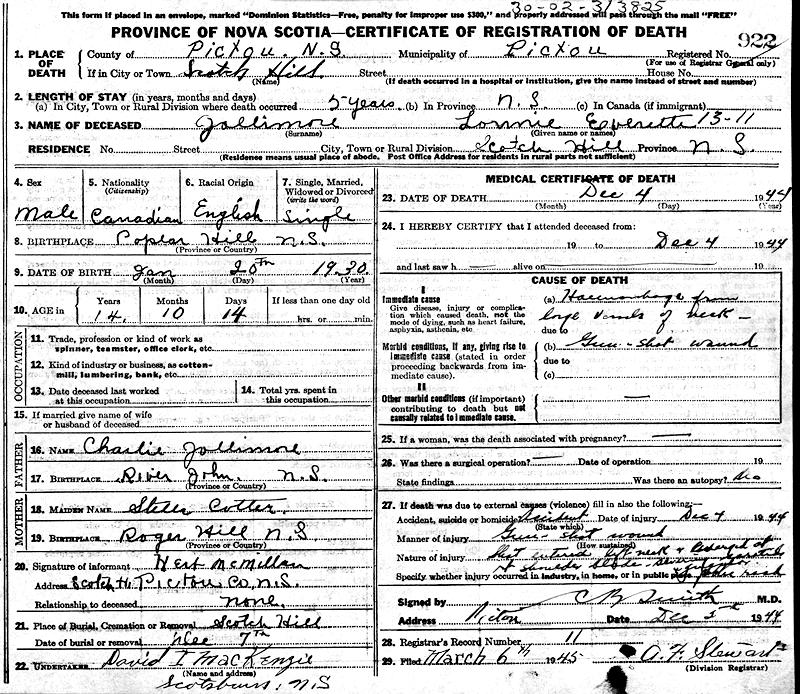 30-02-313825
This form if placed in an envelope, marked "Dominion Statistics—Free, penalty for improper use $300," and properly addressed will pass through the mail "FREE"
PROVINCE OF NOVA SCOTIA—CERTIFICATE OF REGISTRATION OF DEATH
922
1. PLACE OF DEATH
County of Pictou, N.S. Municipality of Pictou Registered No.
(For use of Registrar General only)
If in City or Town Scotch Hill Street House No.
(Name) (If death occurred in a hospital or institution, give the name instead of street and number)
2. LENGTH OF STAY (in years, months and days)
(a) In City, Town or Rural Division where death occurred 5 years. (b) In Province N.S. (c) In Canada (if immigrant)
3. NAME OF DECEASED Jollimore Lonnie Everette 13-11
(Surname) (Given name or names)
RESIDENCE No. Street City, Town or Rural Division Scotch Hill Province N.S.
(Residence means usual place of abode. Post Office Address for residents in rural parts not sufficient)
4. Sex Male
5. Nationality (Citizenship) Canadian
6. Racial Origin English
7. Single, Married, Widowed or Divorced (write the word) Single
8. BIRTHPLACE Poplar Hill N.S.
(Province or Country)
9. DATE OF BIRTH Jan 20th 1930
(Month) (Day) (Year)
10. AGE in Years 14 Months 10 Days 14 If less than one day old hrs. or min.
OCCUPATION
11. Trade, profession or kind of work as spinner, teamster, office clerk, etc.
12. Kind of industry or business, as cotton-mill, lumbering, bank, etc.
13. Date deceased last worked at this occupation
14. Total yrs. spent in this occupation
15. If married give name of wife or husband of deceased
FATHER
16. NAME Charlie Jollimore
17. BIRTHPLACE River John N.S.
(Province or Country)
MOTHER
18. MAIDEN NAME Stella Cotter
19. BIRTHPLACE Roger Hill N.S
(Province or Country)
20. Signature of informant McMillan
Address Scotch H. Pictou Co, N.S.
Relationship to deceased none.
21. Place of Burial, Cremation or Removal Scotch Hill
Date of burial or removal Dec 7th
22. UNDERTAKER David I MacKenzie
(Name and address)
Scotsburn, N.S
MEDICAL CERTIFICATE OF DEATH
23. DATE OF DEATH Dec 4 1944
(Month) (Day) (Year)
24. I HEREBY CERTIFY that I attended deceased from:
19 to Dec 4 1944
and last saw h alive on 19
CAUSE OF DEATH
I
Immediate cause
Give disease, injury or complication which caused death, not the mode of dying, such as heart failure, asphyxia, asthenia, etc.
(a) Haemorrhage from
large vessels of neck —
due to
Morbid conditions, if any, giving rise to immediate cause (stated in order proceeding backwards from immediate cause).
(b) Gun-shot wound
due to
(c)
II
Other morbid conditions (if important) contributing to death but not causally related to immediate cause.
25. If a woman, was the death associated with pregnancy?
26. Was there a surgical operation? Date of operation 19
State findings Was there an autopsy? No
27. If death was due to external causes (violence) fill in also the following:—
Accident, suicide or homicide Accident Date of injury Dec 4 1944
(State which)
Manner of injury Gun-shot wound
(How sustained)
Nature of injury Shot entered left neck &
Specify whether injury occurred in industry, in home, or in public place
Signed by C B Smith M.D.
Address Pictou Date Dec 5 1944
28. Registrar's Record Number 11
29. Filed March 6th 1945 O. F. Stewart
(Division Registrar)